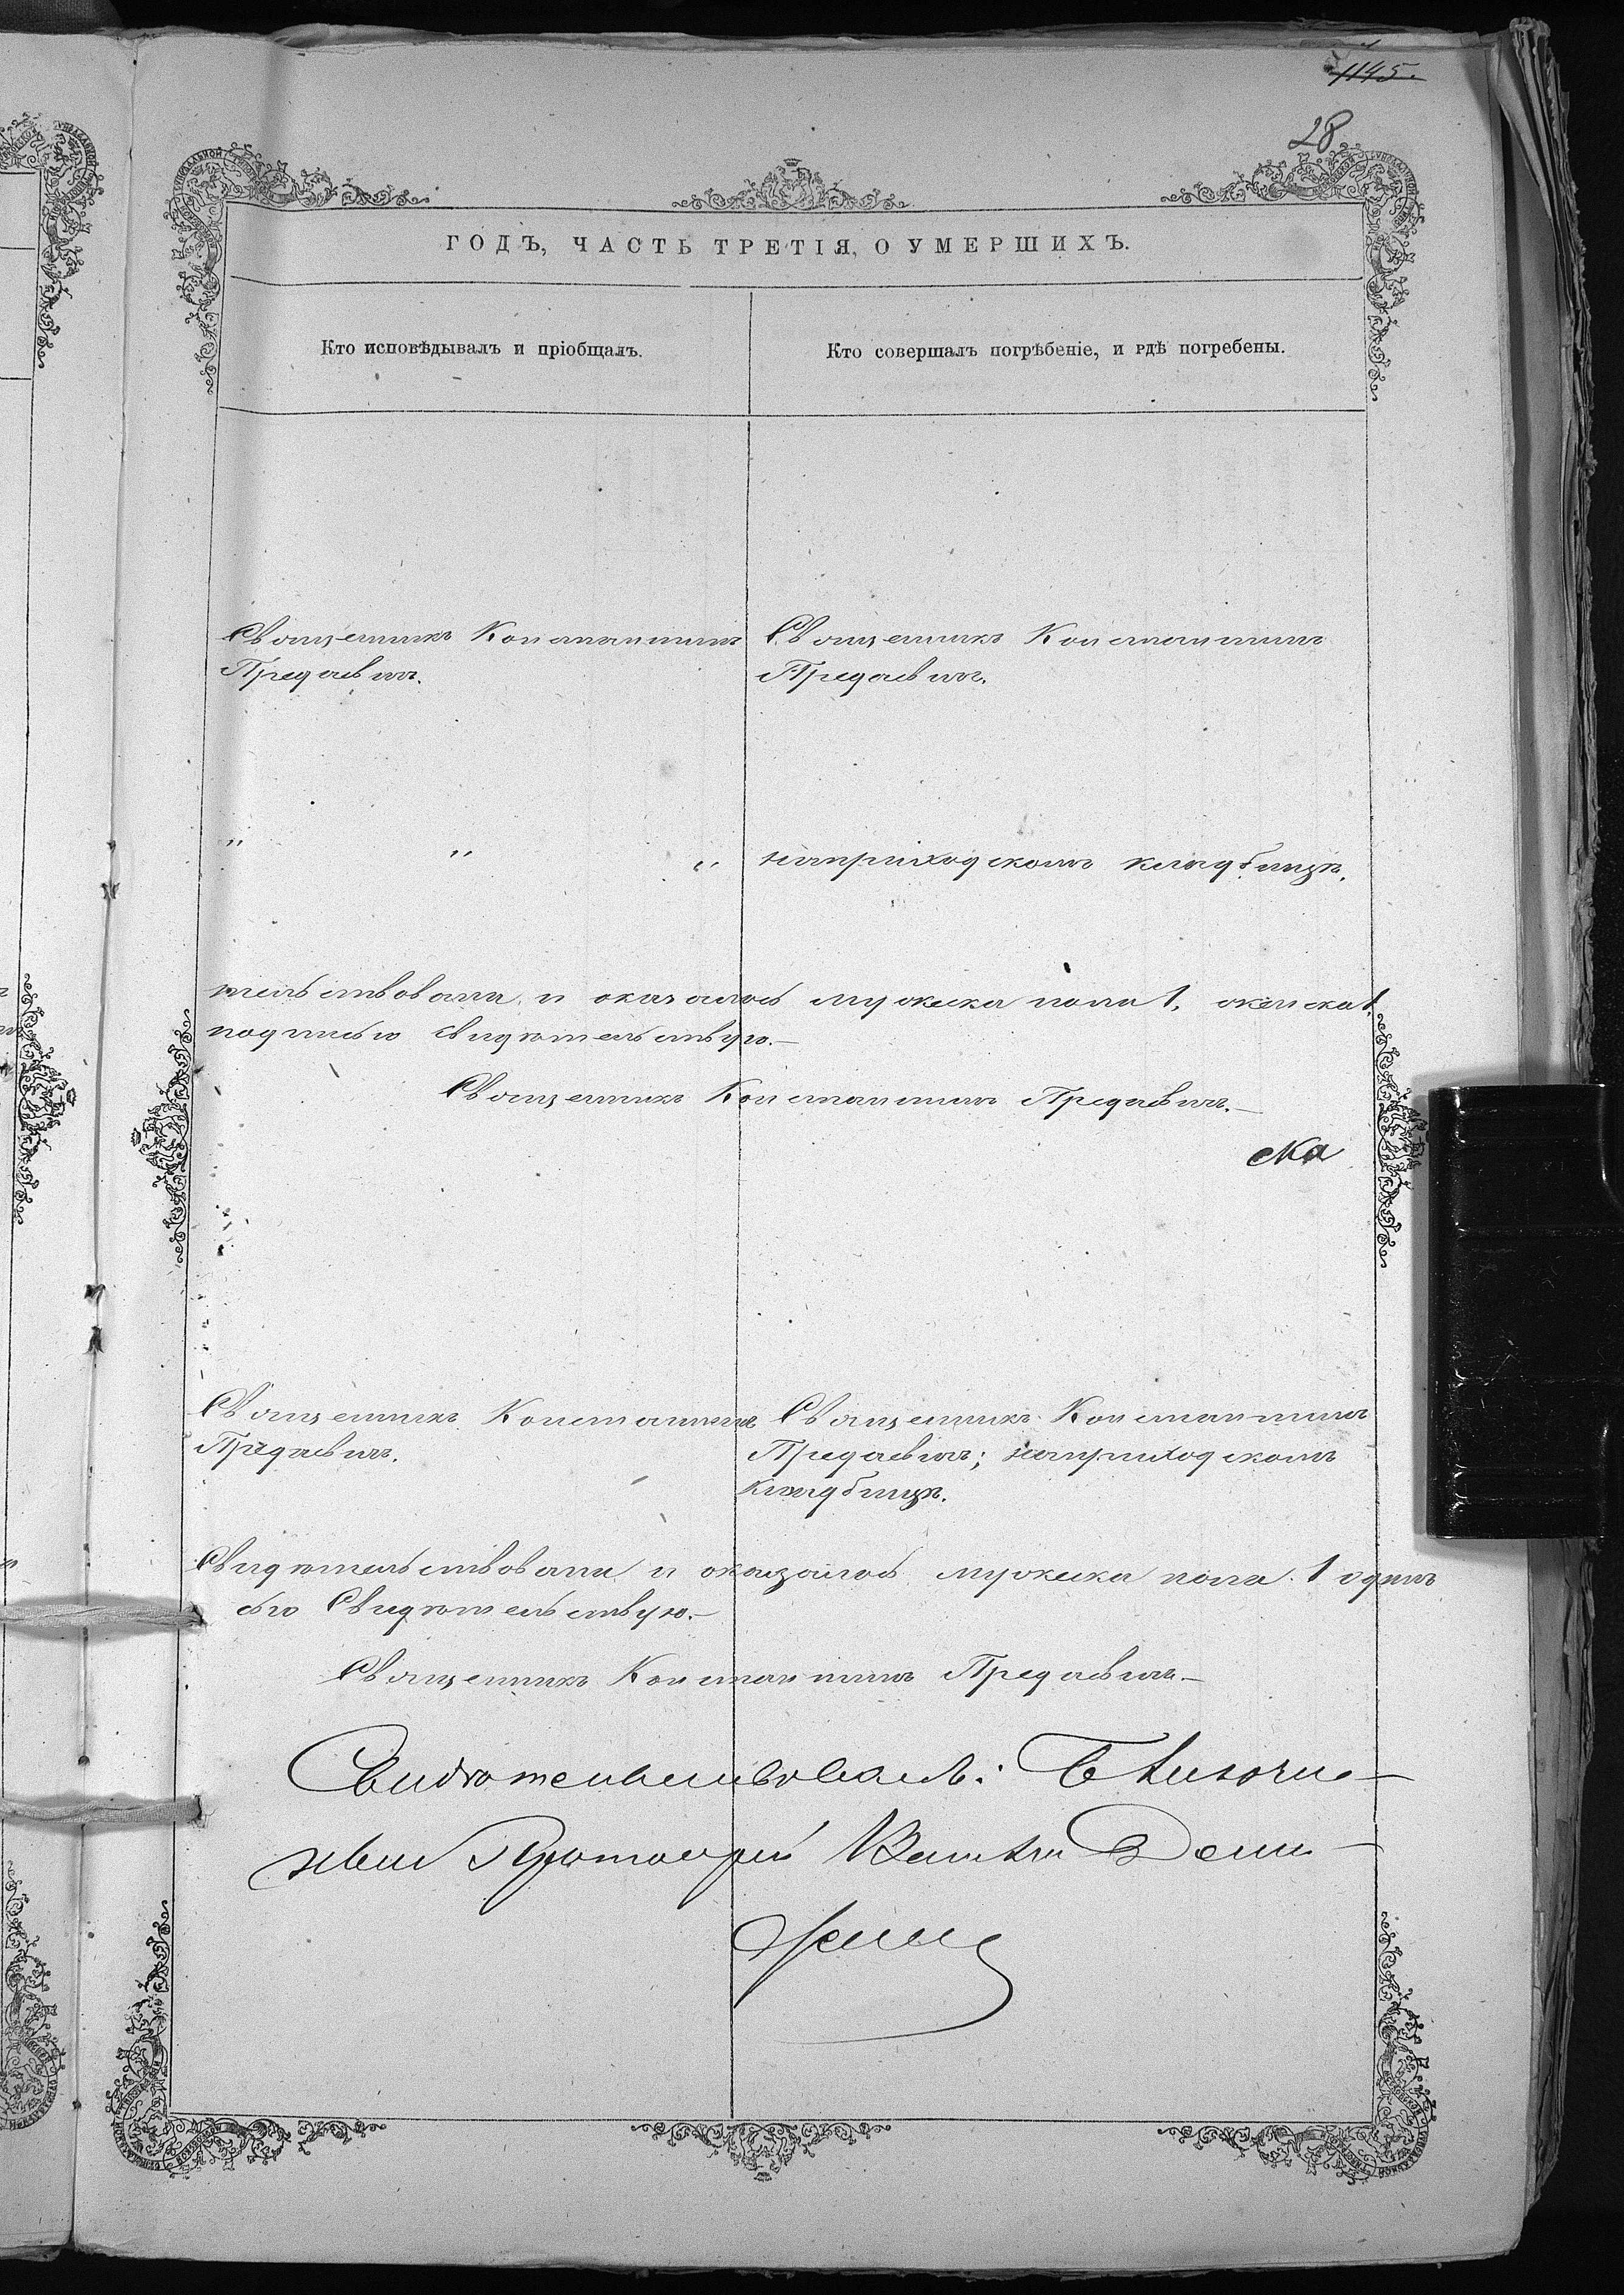 1145.
28
ГОДЪ, ЧАСТЬ ТРЕТІЯ, О УМЕРШИХЪ.
Кто исповѣдывалъ и пріобщалъ.
Кто совершалъ погрѣбеніе, и гдѣ погребены.
Священникъ Константинъ
Предаевичъ.
Священникъ Константинъ
Предаевичъ.
" " "
на приходскомъ кладбищѣ.
тельствовали, и оказалось мужеска пола 1, женска 1.
подписью свидѣтельствую.—
Священникъ Константинъ Предаевичъ.—
ска
Священникъ Константинъ
Предаевичъ.
Священникъ Константинъ
Предаевичъ; на приходскомъ
кладбищѣ.
Свидѣтельствовали и оказалось мужеска пола 1 одинъ
сью Свидѣтельствую.—
Священникъ Константинъ Предаевичъ—
Свидѣтельствовалъ: Благочин-
ный Протоіерей